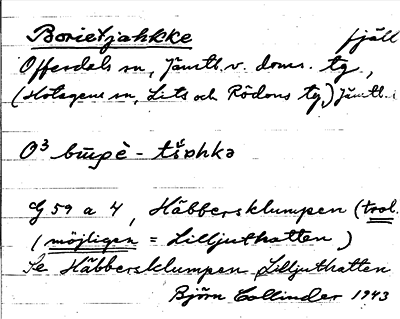 Borietjahkke fjäll
Offerdals sn, Jämtl. v. doms. tg,
(Hotagens sn, Lits och Rödöns tg,) Jämtl.
O³
G 59 a 4, Häbbersklumpen (trol.
(möjligen = Lilljuthatten)
Se Häbbersklumpen Lilljuthatten
Björn Collinder 1943